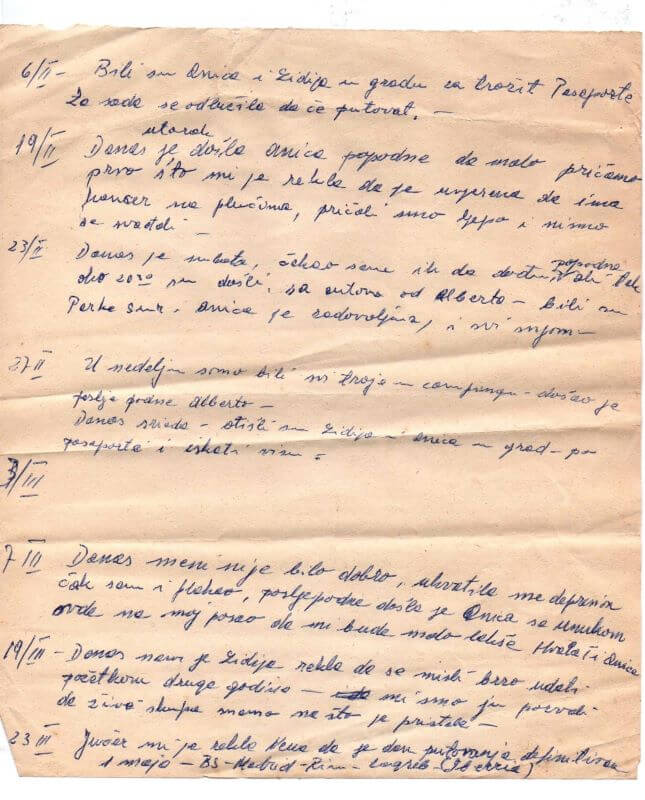 6/II - Bili su Anica i Lidija u gradu za tražit Pasaporte
Za sada se odlučila da će putovat. -
utorak
19/II Danas je došla Anica popodne da malo pričamo
prvo što mi je rekla da je uvjerena da ima
kancer na plućima, pričali smo lijepo i nismo
se svađali -
23/II Danas je subata, čekao sam ih da dođu popodne ali tek
oko 2030 su došli, sa autom od Alberto - bili su
Parke Sur i Anica je zadovoljna, i svi njom
27 II U nedelju smo bili svi troje u campingu - došao je
poslje podne Alberto -
Danas srieda - otišli su Lidija i Anica u grad - po
pasaporte i iskati visu -
3/III
7 III Danas meni nije bilo dobro, uhvatila me depresija
čak sam i plakao, posljepodne došla je Anica sa unukom
ovde na moj posao da mi bude malo lakše Hvala ti Anica
19/III - Danas nam je Lidija rekla da se misli brzo udati
početkom druge godine - mi smo joj ponudili
da živi skupa s nama na što je pristala -
23 III Jučer mi je rekla Nena da je dan putovanja definitivan
1 maja - BS - Madrid - Rim - Zagreb - (Iberria)